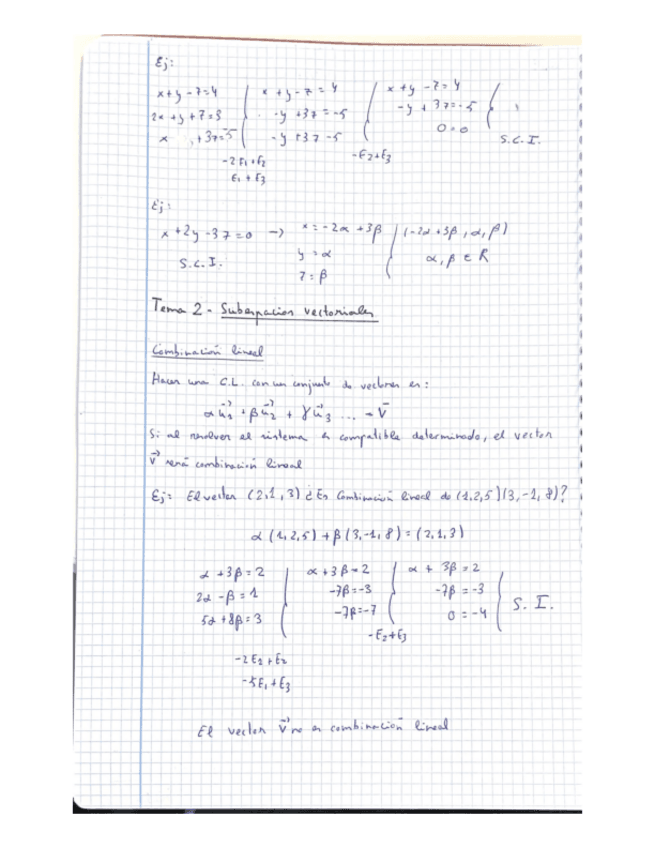 Ej:
x+y-z=4 | x+y-z=4 | x+y-z=4
2x+y+z=3 | -y+3z=-5 | -y+3z=-5
x +3z=-5 | -y+3z-5 | 0=0 S.C.I.
-2E1+E2 -E2+E3
E1+E3
Ej:
x+2y-3z=0 → x=-2α+3β | (-2α+3β, α, β)
S.C.I. y=α α, β ∈ R
z=β
Tema 2 - Subespacios vectoriales
Combinación lineal
Hacer una C.L. con un conjunto de vectores es:
αu⃗1+βu⃗2+γu⃗3 ... = v⃗
Si al resolver el sistema es compatible determinado, el vector
v⃗ será combinación lineal
Ej: El vector (2,1,3) ¿Es Combinación lineal de (1,2,5)(3,-1,8)?
α(1,2,5)+β(3,-1,8)=(2,1,3)
α+3β=2 | α+3β=2 | α+3β=2
2α-β=1 | -7β=-3 | -7β=-3 S.I.
5α+8β=3 | -7β=-7 | 0=-4
-E2+E3
-2E1+E2
-5E1+E3
El vector v⃗ no es combinación lineal